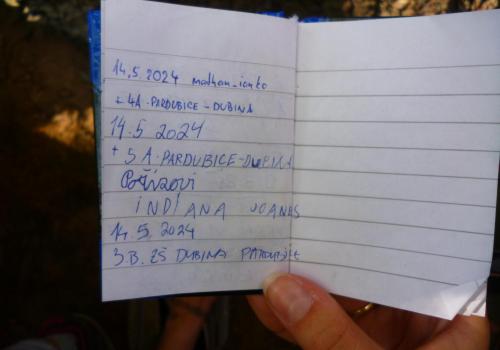 14.5.2024 mathan_ianko
+ 4A. PARDUBICE - DUBINA
14.5 2024
+ 5 A. PARDUBICE-DUBINA
INDIANA JOANES
14.5.2024
3.B. ZŠ DUBINA PARDUBICE